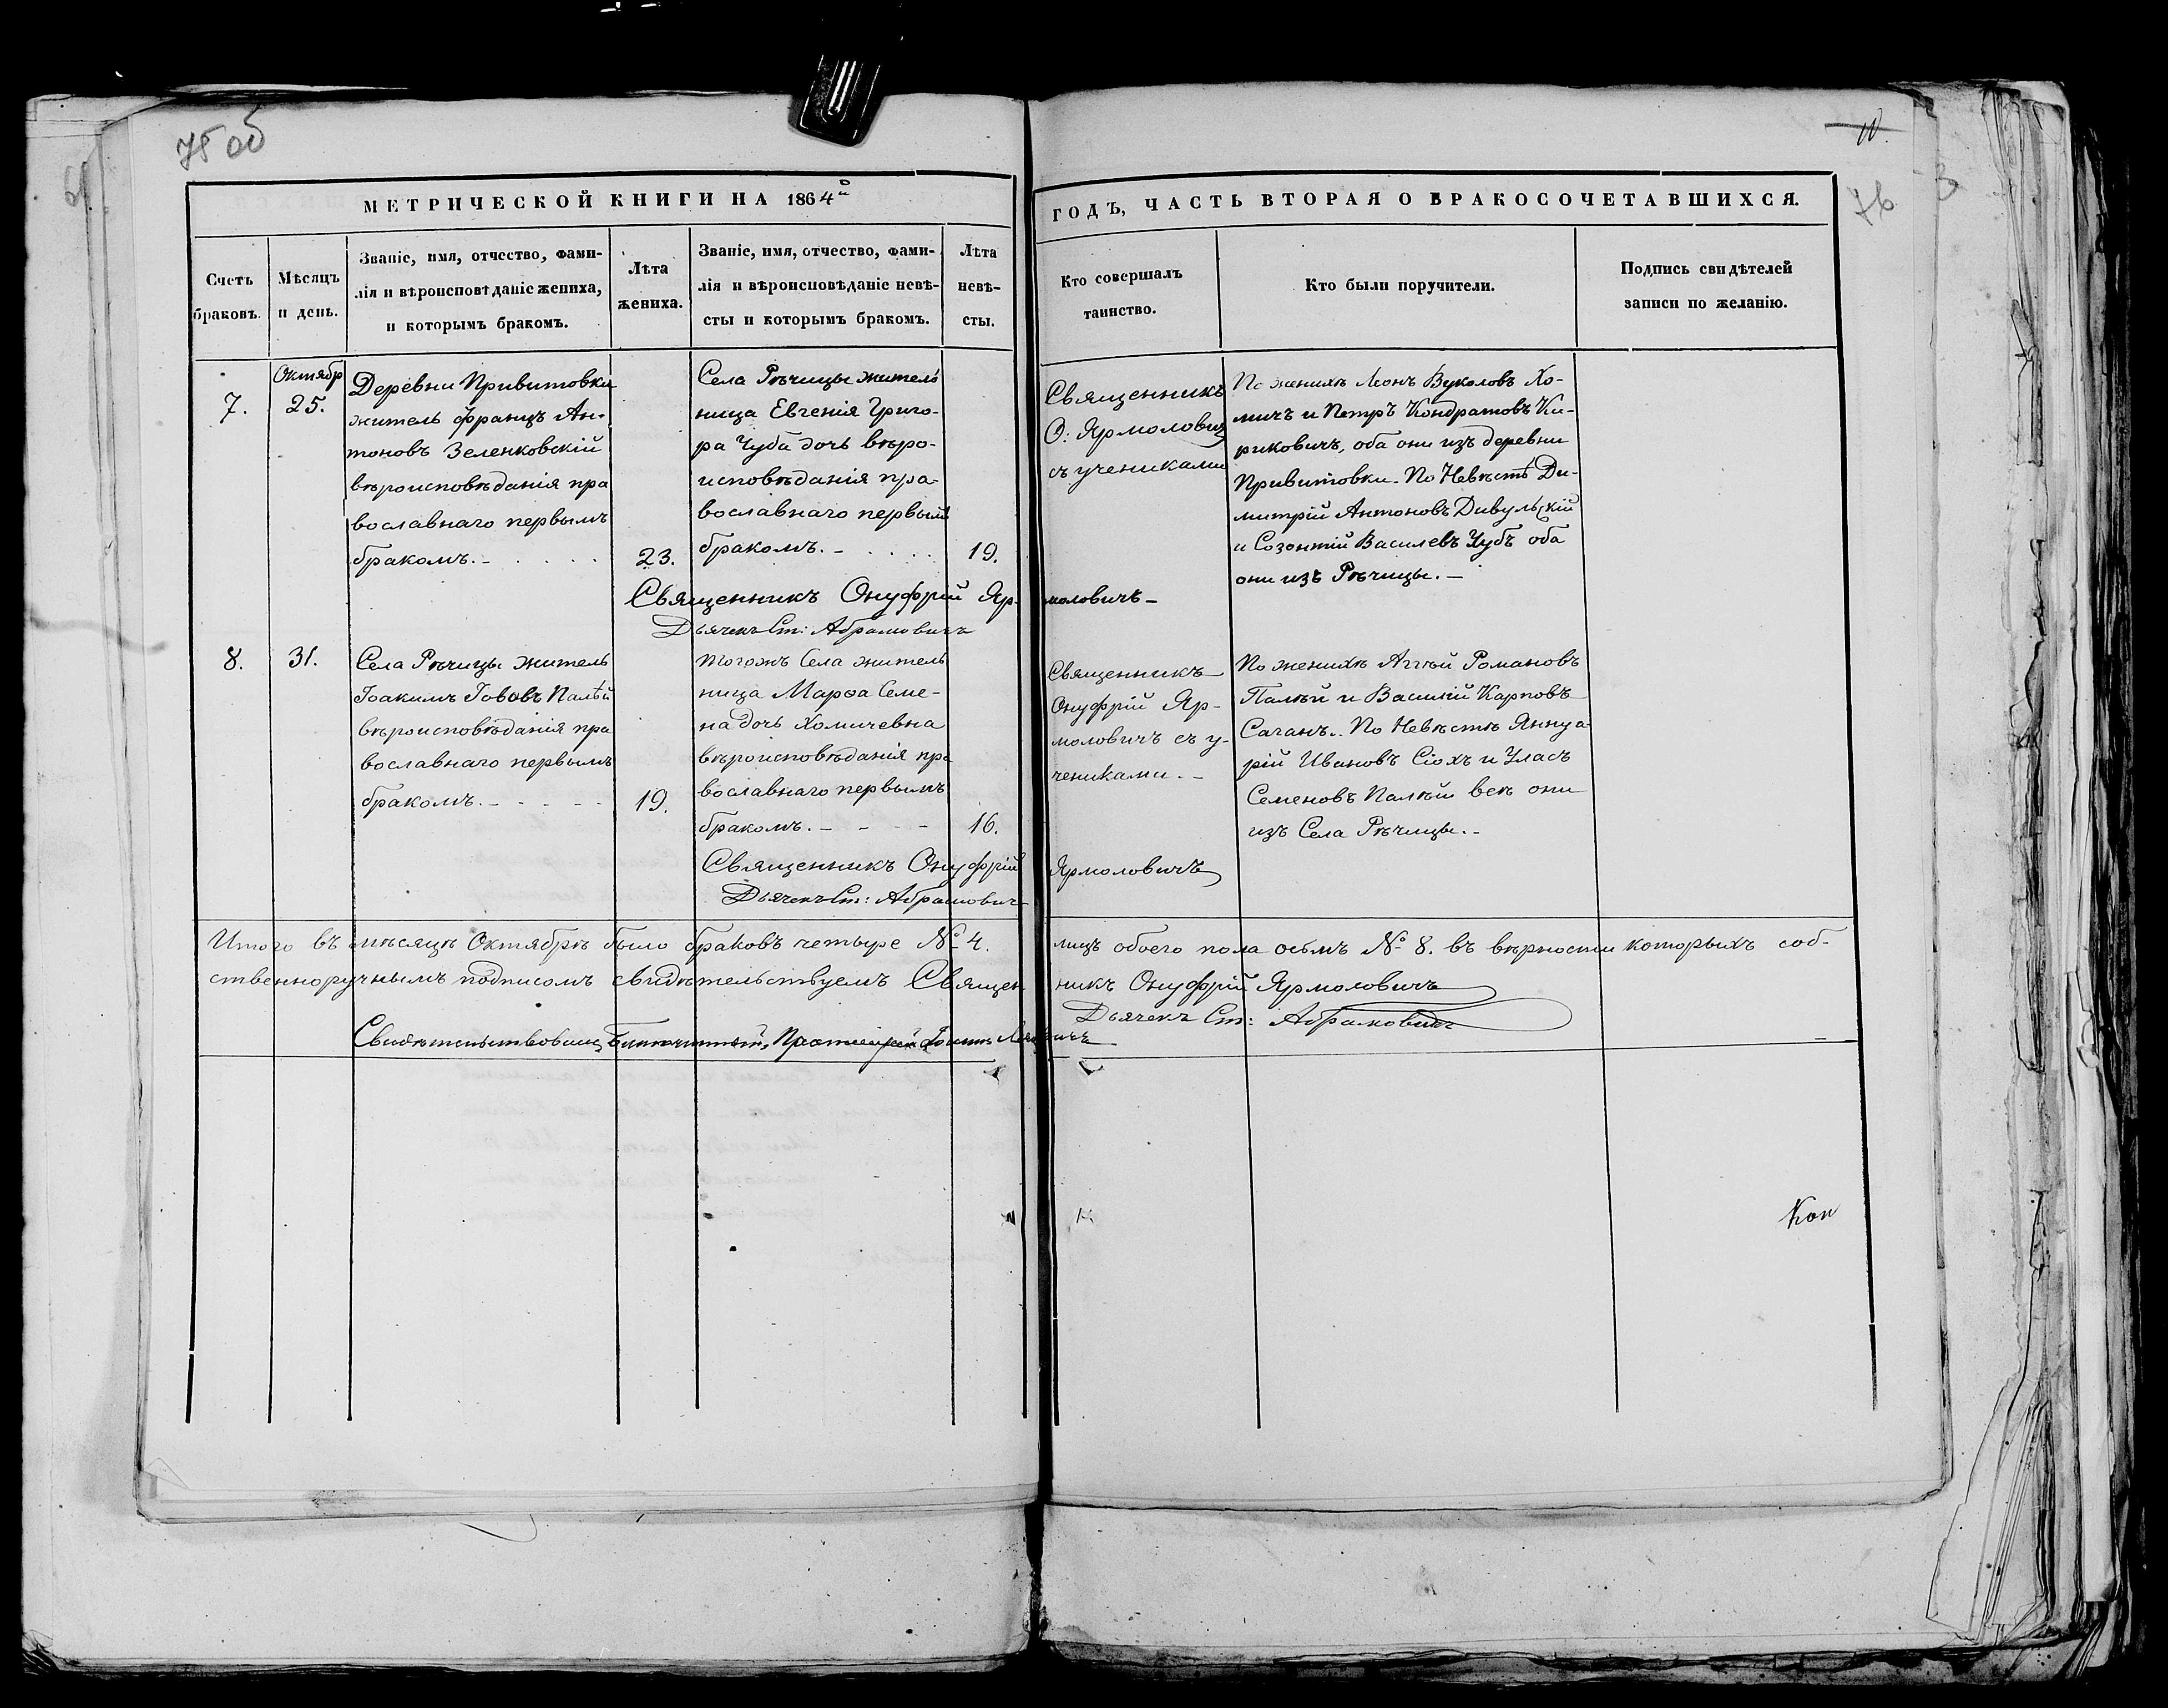 75 об
10.
76
МЕТРИЧЕСКОЙ КНИГИ НА 1864й
ГОДЪ, ЧАСТЬ ВТОРАЯ О БРАКОСОЧЕТАВШИХСЯ.
Счетъ
браковъ.
Мѣсяцъ
и день.
Званіе, имя, отчество, фами-
лія и вѣроисповѣданіе жениха,
и которымъ бракомъ.
Лѣта
жениха.
Званіе, имя, отчество, фами-
лія и вѣроисповѣданіе невѣ-
сты и которымъ бракомъ.
Лѣта
невѣ-
сты.
Кто совершалъ
таинство.
Кто были поручители.
Подпись свидѣтелей
записи по желанію.
7.
Октябр
25.
Деревни Привитовки
житель Францъ Ан-
тоновъ Зеленковскій
вѣроисповѣданія пра
вославнаго первымъ
бракомъ.
23.
Села Рѣчицы житель
ница Евгенія Григо-
ра Чуба дочь вѣро-
исповѣданія пра-
вославнаго первымъ
бракомъ.
19.
Священникъ
О: Ярмоловичъ
съ учениками
По женихѣ Леонъ Вуколовъ Хо-
мичъ и Петръ Кондратовъ Ки-
риковичъ, оба они изъ деревни
Привитовки. По Невѣстѣ Ди-
митрій Антоновъ Дивульскій
и Созонтій Василевъ Чубъ оба
они изъ Рѣчицы.
Священникъ Онуфрій Ярмоловичъ
Дьячекъ Ст: Абрамовичъ
8.
31.
Села Рѣчицы житель
Іоакимъ Іововъ Палѣй
вѣроисповѣданія пра
вославнаго первымъ
бракомъ.
19.
тогожъ Села житель
ница Марѳа Семе-
на дочь Хомичевна
вѣроисповѣданія пра
вославнаго первымъ
бракомъ.
16.
Священникъ
Онуфрій Яр-
моловичъ съ у-
чениками.
По женихѣ Аггѣй Романовъ
Палѣй и Василій Карповъ
Сачанъ. По Невѣстѣ Яннуа-
рій Ивановъ Сіохъ и Уласъ
Семеновъ Палѣй всѣ они
изъ Села Рѣчицы.
Священникъ Онуфрій Ярмоловичъ
Дьячекъ Ст: Абрамович
Итого въ мѣсяцѣ Октябрѣ было браковъ четыре № 4. лицъ обоего пола осьмъ № 8. въ вѣрности которыхъ соб-
ственноручнымъ подписомъ свидѣтельствуемъ Священникъ Онуфрій Ярмоловичъ
Дьячекъ Ст: Абрамовичъ
Свидѣтельствовалъ Благочинный, Протоіерей
Кон